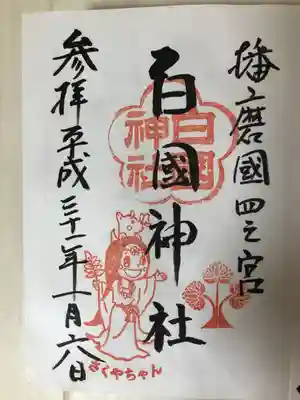 播磨國四之宮
白國神社
白國
神社
参拝平成三十一年一月六日
さくやちゃん